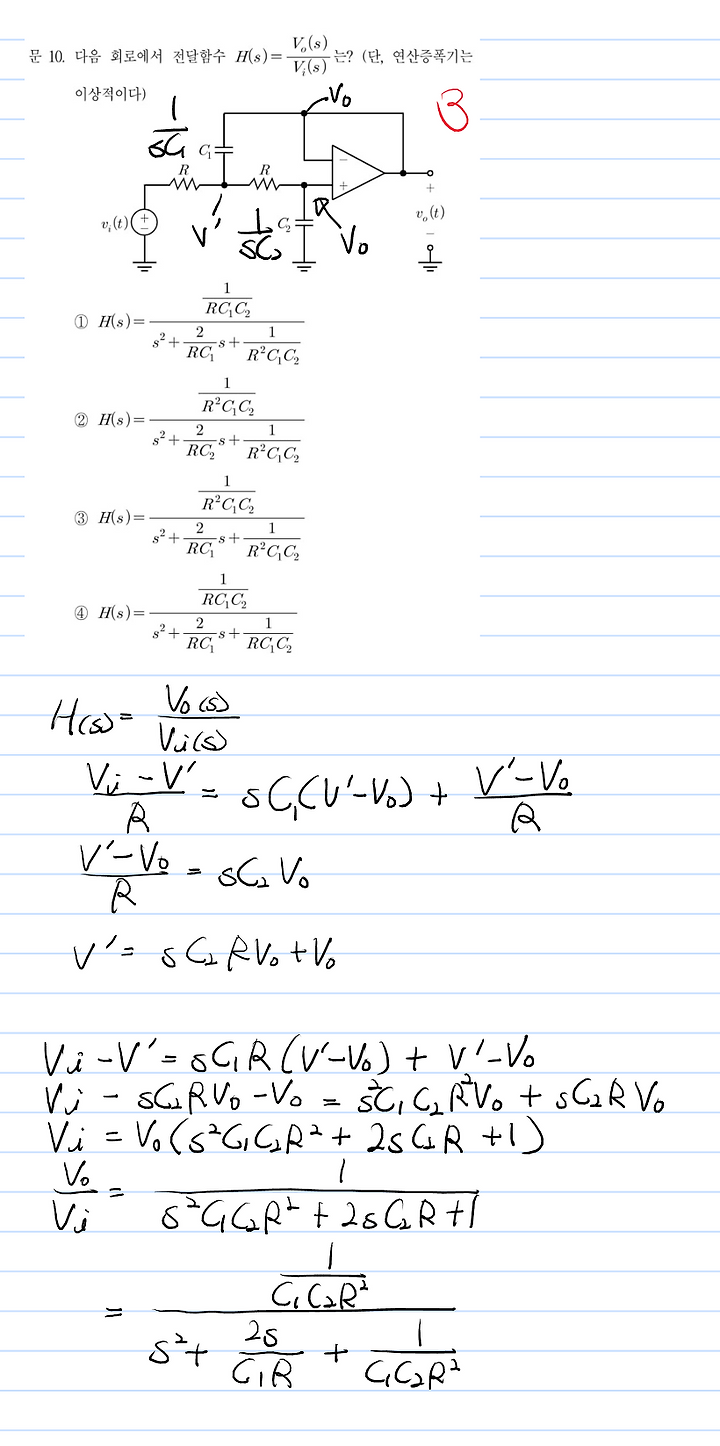 문 10. 다음 회로에서 전달함수 H(s)=V_o(s)/V_i(s) 는? (단, 연산증폭기는
이상적이다)
V₀
3
1/sC₁
C₁
R R
−
+
v_i(t) + −
V′
1/sC₂
C₂
V₀
+
v_o(t)
−
① H(s)= (1/(RC₁C₂)) / (s²+(2/(RC₁))s+1/(R²C₁C₂))
② H(s)= (1/(R²C₁C₂)) / (s²+(2/(RC₂))s+1/(R²C₁C₂))
③ H(s)= (1/(R²C₁C₂)) / (s²+(2/(RC₁))s+1/(R²C₁C₂))
④ H(s)= (1/(RC₁C₂)) / (s²+(2/(RC₁))s+1/(RC₁C₂))
H(s)= V₀(s)/Vi(s)
(Vi−V′)/R = sC₁(V′−V₀) + (V′−V₀)/R
(V′−V₀)/R = sC₂V₀
V′= sC₂RV₀+V₀
Vi−V′= sC₁R(V′−V₀) + V′−V₀
Vi − sC₂RV₀ −V₀ = s²C₁C₂R²V₀ + sC₂RV₀
Vi = V₀(s²C₁C₂R² + 2sC₂R +1)
V₀/Vi = 1/(s²C₁C₂R² + 2sC₂R+1)
= (1/(C₁C₂R²)) / (s²+ 2s/(C₁R) + 1/(C₁C₂R²))